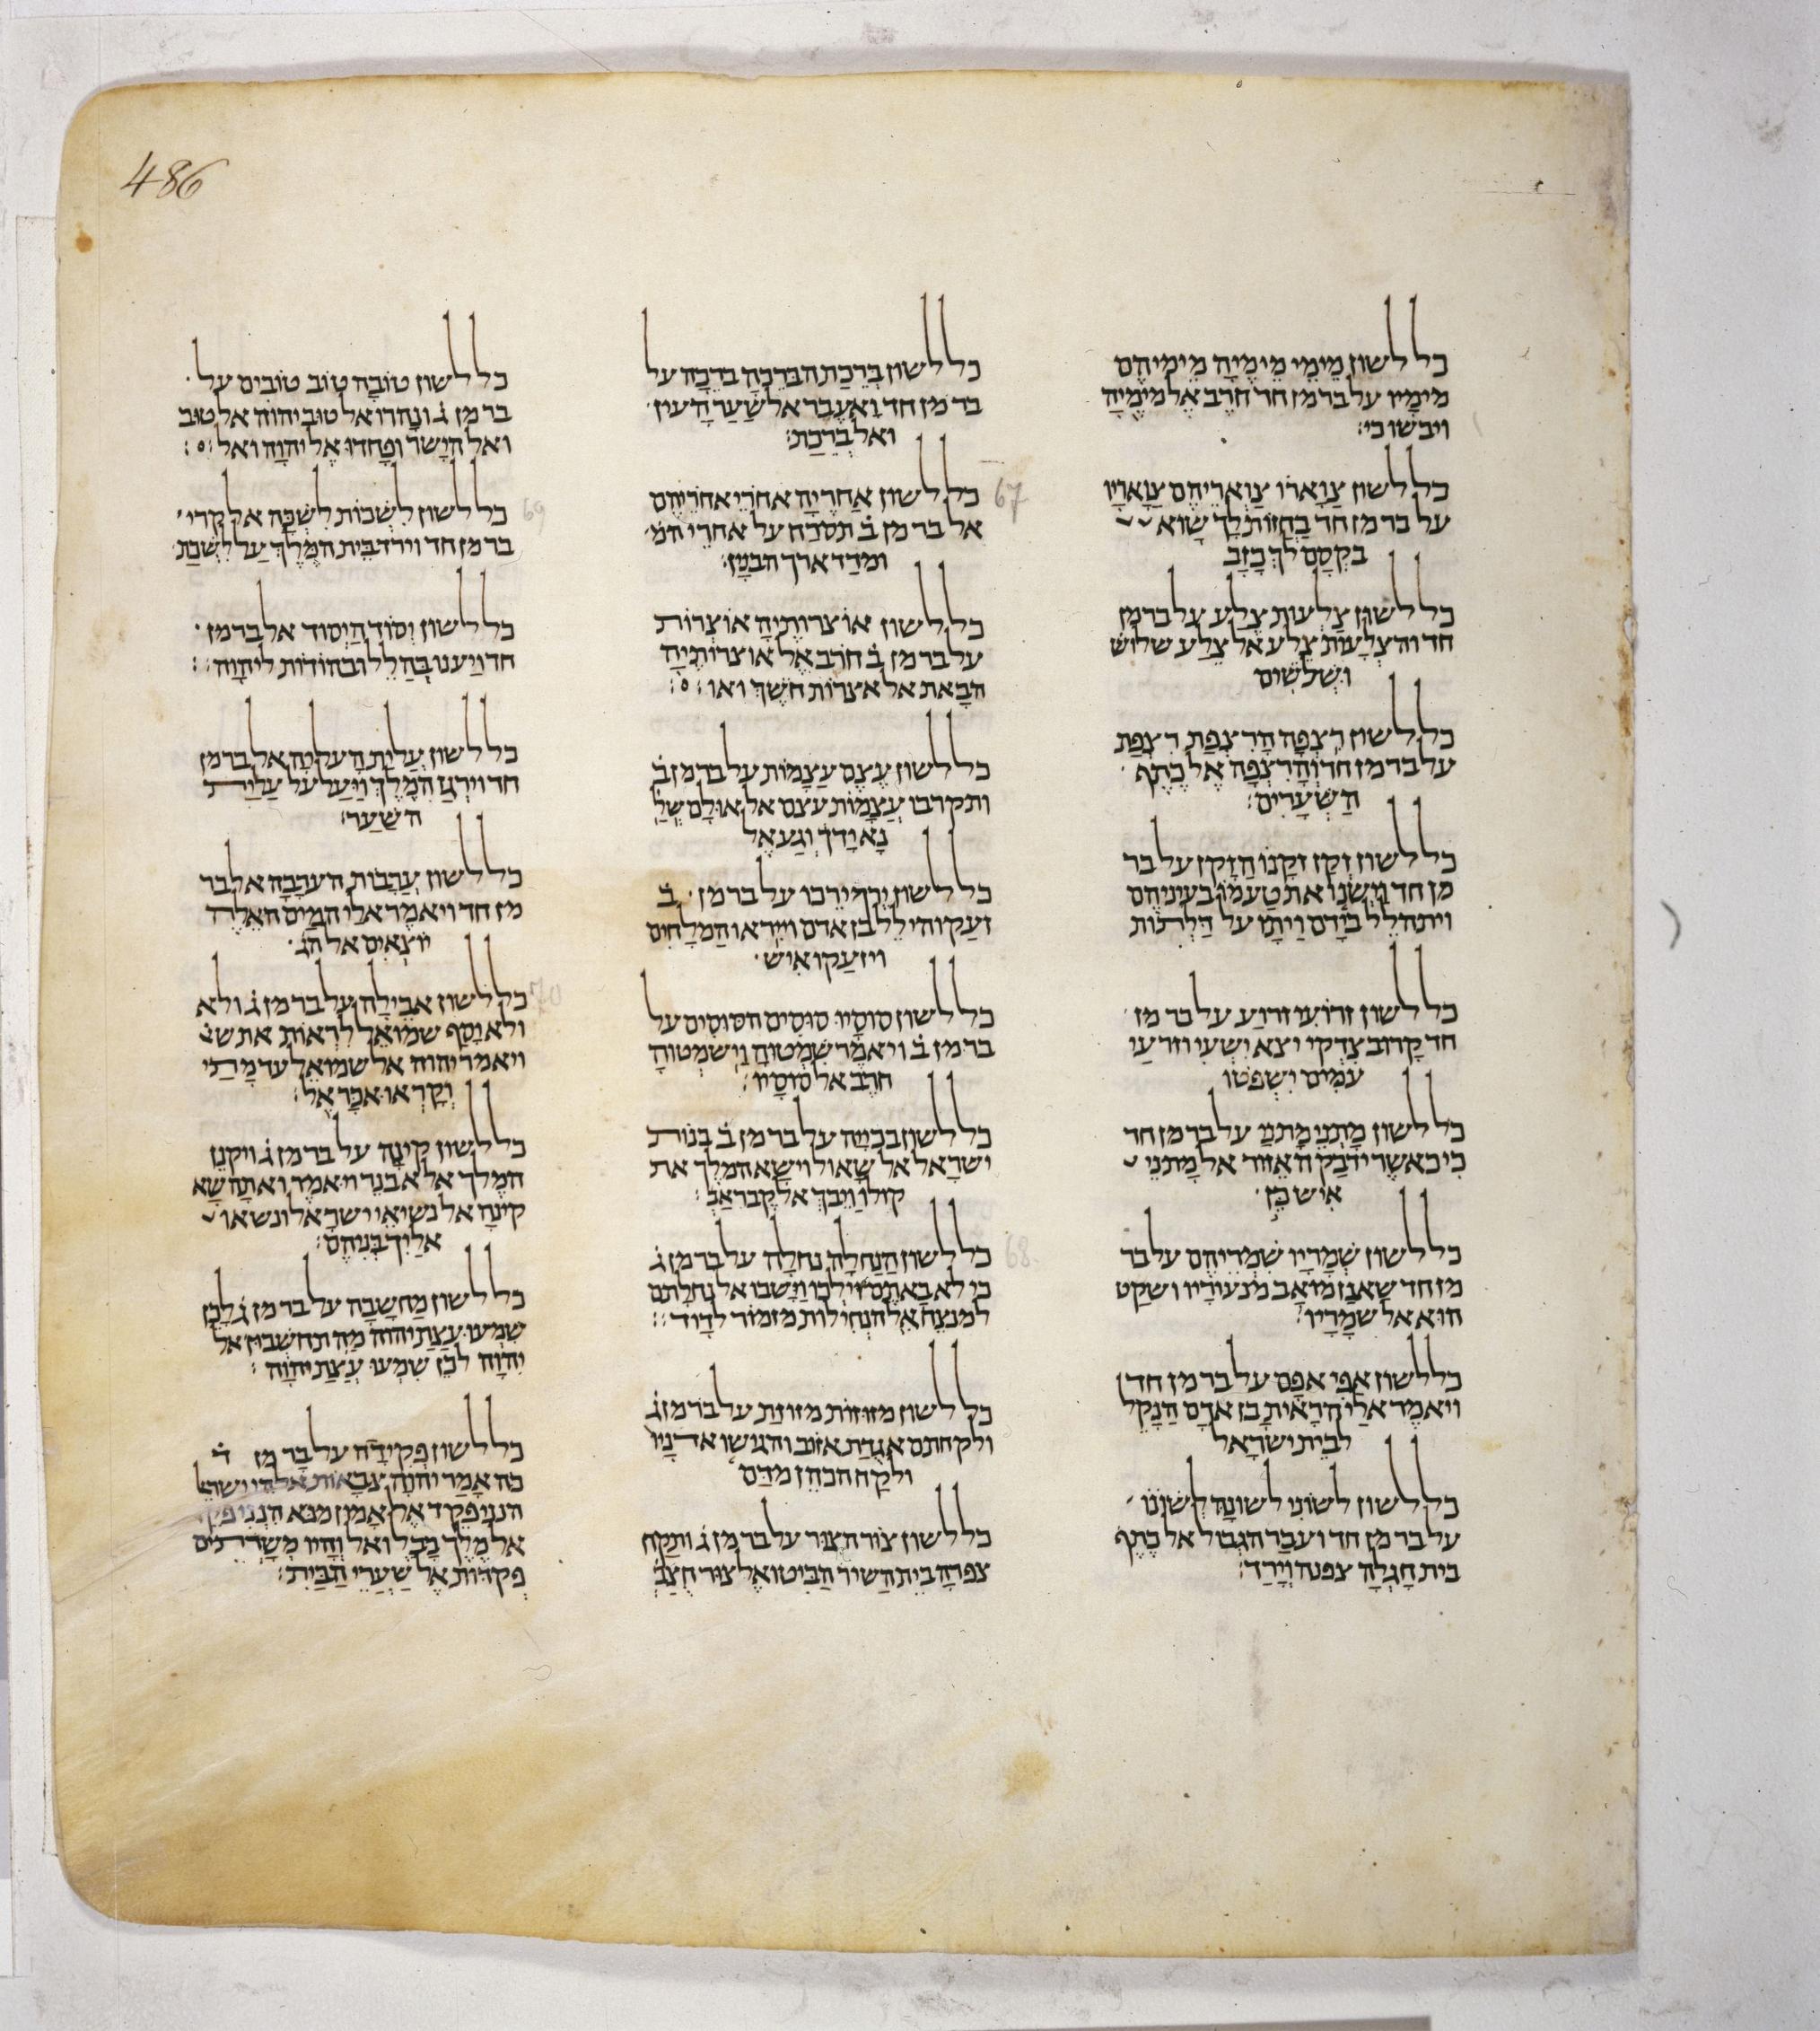 486
כל לשון מימי מימיה מימיהם
מימיו על בר מן חד חרב אל מימיה
ויבשו כי׃
כל לשון צוארו צואריהם צואריו
על בר מן חד בחזות לך שוא
בקסם לך כזב
כל לשון צלעות צלע על בר מן
חד והצלעות צלע אל צלע שלוש
ושלשים
כל לשון רצפה הרצפת רצפת
על בר מן חד והרצפה אל כתף
השערים׃
כל לשון זקן זקנו הזקן על בר
מן חד וישנו את טעמו בעיניהם
ויתהלל בידם ויתו על דלתות
כל לשון זרועי זרוע על בר מן
חד קרוב צדקי יצא ישעי וזרעי
עמים ישפטו
כל לשון מתני מתנו על בר מן חד
כי כאשר ידבק האזור אל מתני
איש כן
כל לשון שמריו שמריהם על בר
מן חד שאנן מואב מנעוריו ושקט
הוא אל שמריו׃
כל לשון אפי אפם על בר מן חד
ויאמר אלי הראית בן אדם הנקל
לבית ישראל
כל לשון לשוני לשונה לשונו
על בר מן חד ועבר הגבול אל כתף
בית חגלה צפנה וירד׃
כל לשון ברכת הברכה ברכה על
בר מן חד ואעבר אל שער העין
ואל ברכת׃
67
כל לשון אחריה אחרי אחריהם
אל בר מן ב̇ תסרח על אחרי המ
ומדד ארך הבנין׃
כל לשון אוצרותיה אוצרות
על בר מן ב̇ חרב אל אוצרותיה
הבאת אל אצרות חשך ואו׃
כל לשון עצם עצמות על בר מן ב̇
ותקרבו עצמות עצם אל אולם של
נא ידך וגע אל
כל לשון ירך ירכו על בר מן ב̇
זעק והילל בן אדם וייראו המלחים
ויזעקו איש
כל לשון סוסיו סוסים הסוסים על
בר מן ב̇ ויאמר שמטוה וישמטוה
חרב אל סוסיו׃
כל לשון בכייה על בר מן ב̇ בנות
ישראל אל שאול וישא המלך את
קולו ויבך אל קבר אב׃
68
כל לשון הנחלה נחלה על בר מן ג̇
כי לא באתם וילכו וישבו אל נחלתם
למנצח אל הנחילות מזמור לדוד׃
כל לשון מזוזות מזוזת על בר מן ג̇
ולקחתם אגדת אזוב והגישו אדניו
ולקח הכהן מדם
כל לשון צור הצור על בר מן ג̇ ותקח
צפרה בית השיר הביטו אל צור חצב
כל לשון טובה טוב טובים על
בר מן ג̇ ונהרו אל טוב יהוה אל טוב
ואל הישר ופחדו אל יהוה ואל׃
69
כל לשון לשכות לשכה אל קרי
בר מן חד וירד בית המלך על לשכת
כל לשון יסוד היסוד אל בר מן
חד ויענו בהלל ובהודות ליהוה׃
כל לשון עלית העליה אל בר מן
חד וירגז המלך ויעל על עלית
השער׃
כל לשון ערבות הערבה אל בר
מן חד ויאמר אלי המים האלה
יוצאים אל הג
70
כל לשון אבילה על בר מן ג̇ ולא
ולא יסף שמואל לראות את ש
ויאמר יהוה אל שמואל עד מתי
וקראו אכר אל׃
כל לשון קינה על בר מן ג̇ ויקנן
המלך אל אבנר ויאמר ואתה שא
קינה אל נשיאי ישראל ונשאו
אליך בניהם׃
כל לשון מחשבה על בר מן ג̇ לכן
שמעו עצת יהוה מה תחשבון אל
יהוה לכן שמעו עצת יהוה׃
כל לשון פקידה על בר מן ד̇
כה אמר יהוה צבאות אלהי ישר
הנני פקד אל אמון מנא הנני פקד
אל מלך בבל ואל והיו משרתים
פקדות אל שערי הבית׃